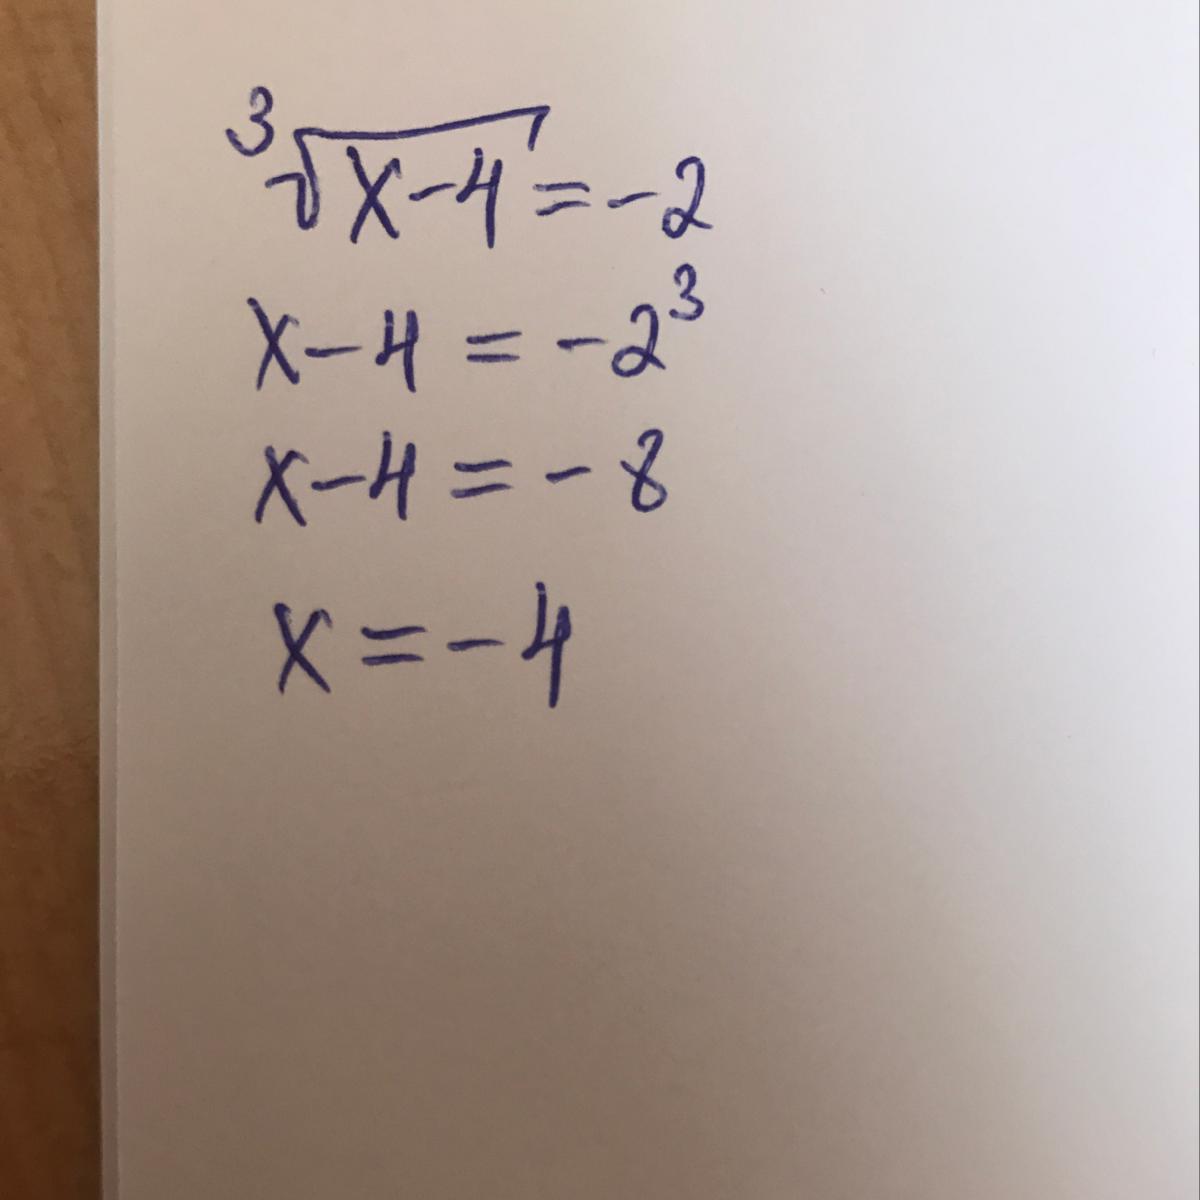 ∛(x-4) = -2
x-4 = -2³
x-4 = -8
x = -4